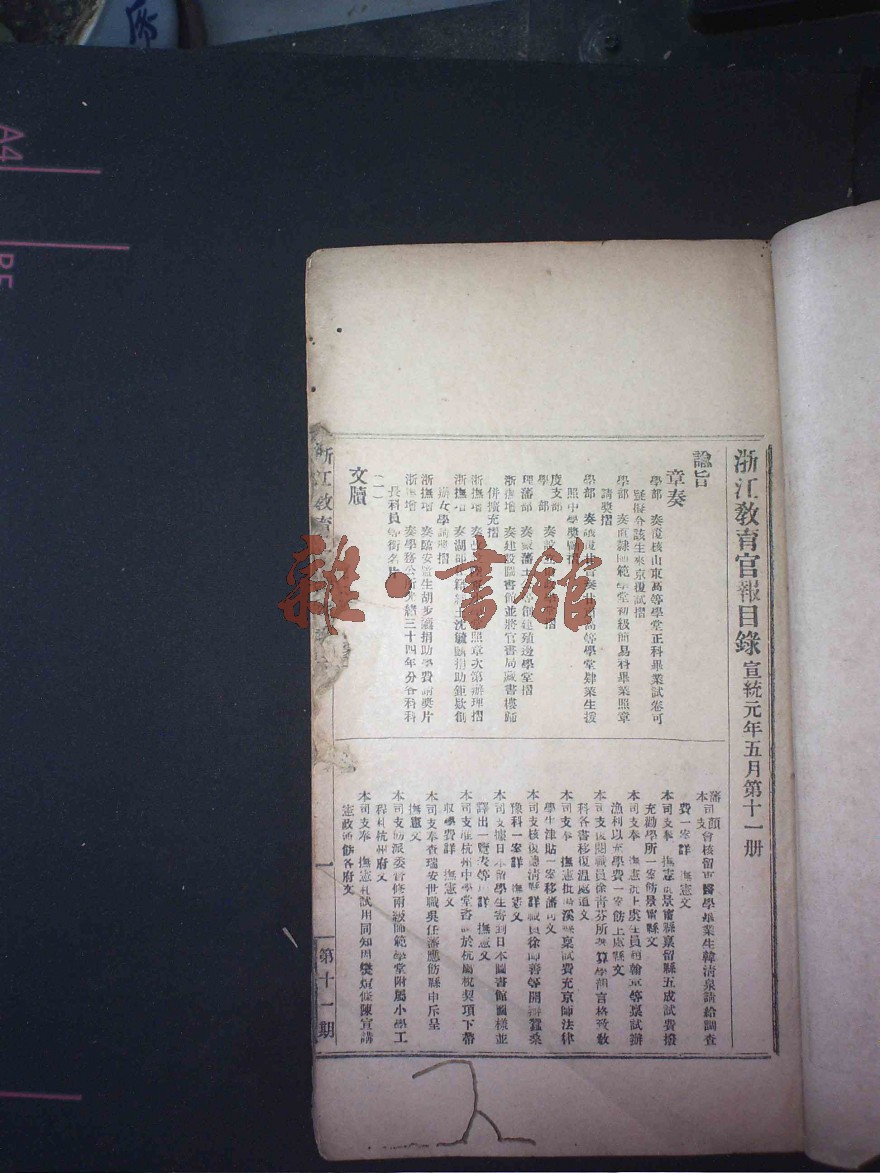 浙江教育官報目錄 宣統元年五月第十一册
諭旨
章奏
學部 奏覆核山東高等學堂正科畢業試卷可
疑擬令該生來京復試摺
學部 奏直隸師範學堂初級簡易科畢業照章
請獎摺
學部 高等學堂肄業生援
照中學獎
度支部
學部
理藩部 創建殖邊學堂摺
浙撫增 奏建設圖書館並將官書局藏書樓歸
併擴充摺
浙撫增 照章次第辦理摺
浙撫增 奏湖 沈毓麟捐助鉅欵創
辦女學
浙撫增 奏臨安監生胡步瀛捐助學費請獎片
浙撫增 奏學務公所光緒三十四年分各科科
長科員銜名片
文牘
(一)
藩 顏
本司支 會核留東醫學畢業生韓清泉請給調查
費一案詳 撫憲文
本司支奉 撫憲 景甯縣稟留縣五成試費撥
充勸學所一案飭景甯縣文
本司支奉 撫憲批上虞生員 等稟試辦
漁利以充學費一案飭上虞縣文
本司支 職員徐青芬所 算學 言格致教
科各書移復溫處道文
本司支奉 撫憲批 溪縣稟試費充京師法律
學生津貼一案移藩司文
本司支核復德清縣詳職員徐 善等開辦蠶桑
豫科一案詳 撫憲文
本司支據日本留學生寄到日本圖書館圖樣並
譯出一覽表等件詳 撫憲文
本司支准杭州中學堂咨 於杭屬 契項下帶
收學費詳 撫憲文
本司支奉查瑞安世職吳任藩應飭縣申斥呈
撫憲文
本司支飭派委 修兩級師範學堂附屬小學工
程札杭州府文
本司支奉 撫憲札試用同知周 條陳宣講
憲政 飭各府文
浙江教育
一
第十一期
雜·書館
A4